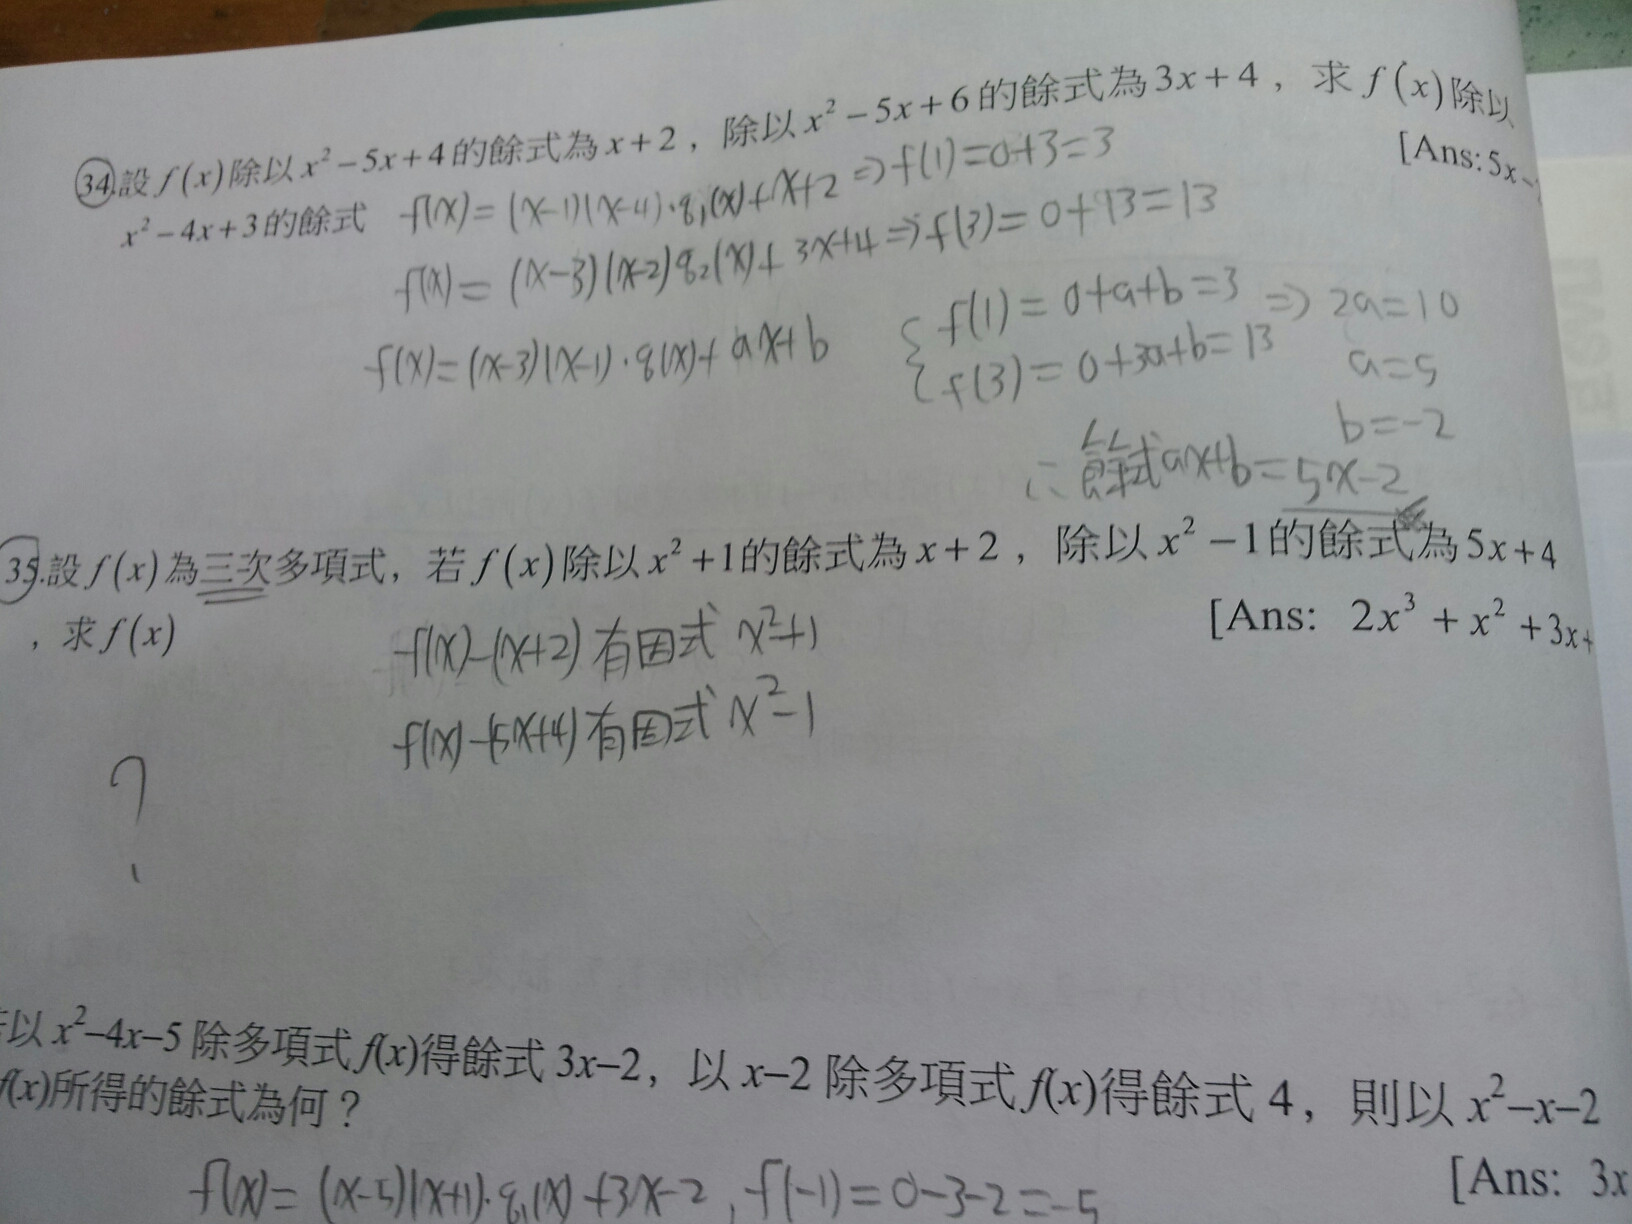 34.設 f(x)除以 x²−5x+4的餘式為 x+2，除以 x²−5x+6的餘式為3x+4，求 f(x)除以
x²−4x+3的餘式
[Ans:5x-
f(x)=(x-1)(x-4)·q₁(x)+x+2⇒f(1)=0+3=3
f(x)=(x-3)(x-2)q₂(x)+3x+4⇒f(3)=0+13=13
f(x)=(x-3)(x-1)·q(x)+ax+b
{f(1)=0+a+b=3 ⇒ 2a=10
f(3)=0+3a+b=13
a=5
b=-2
∴餘式ax+b=5x-2
35.設 f(x)為三次多項式，若 f(x)除以 x²+1的餘式為 x+2，除以 x²−1的餘式為5x+4
，求 f(x)
[Ans: 2x³+x²+3x+
f(x)-(x+2)有因式 x²+1
f(x)-(5x+4)有因式 x²-1
?
以 x²–4x–5 除多項式 f(x)得餘式 3x–2，以 x–2 除多項式 f(x)得餘式 4，則以 x²–x–2
f(x)所得的餘式為何？
[Ans: 3x
f(x)=(x-5)(x+1)·q₁(x)+3x-2, f(-1)=0-3-2=-5